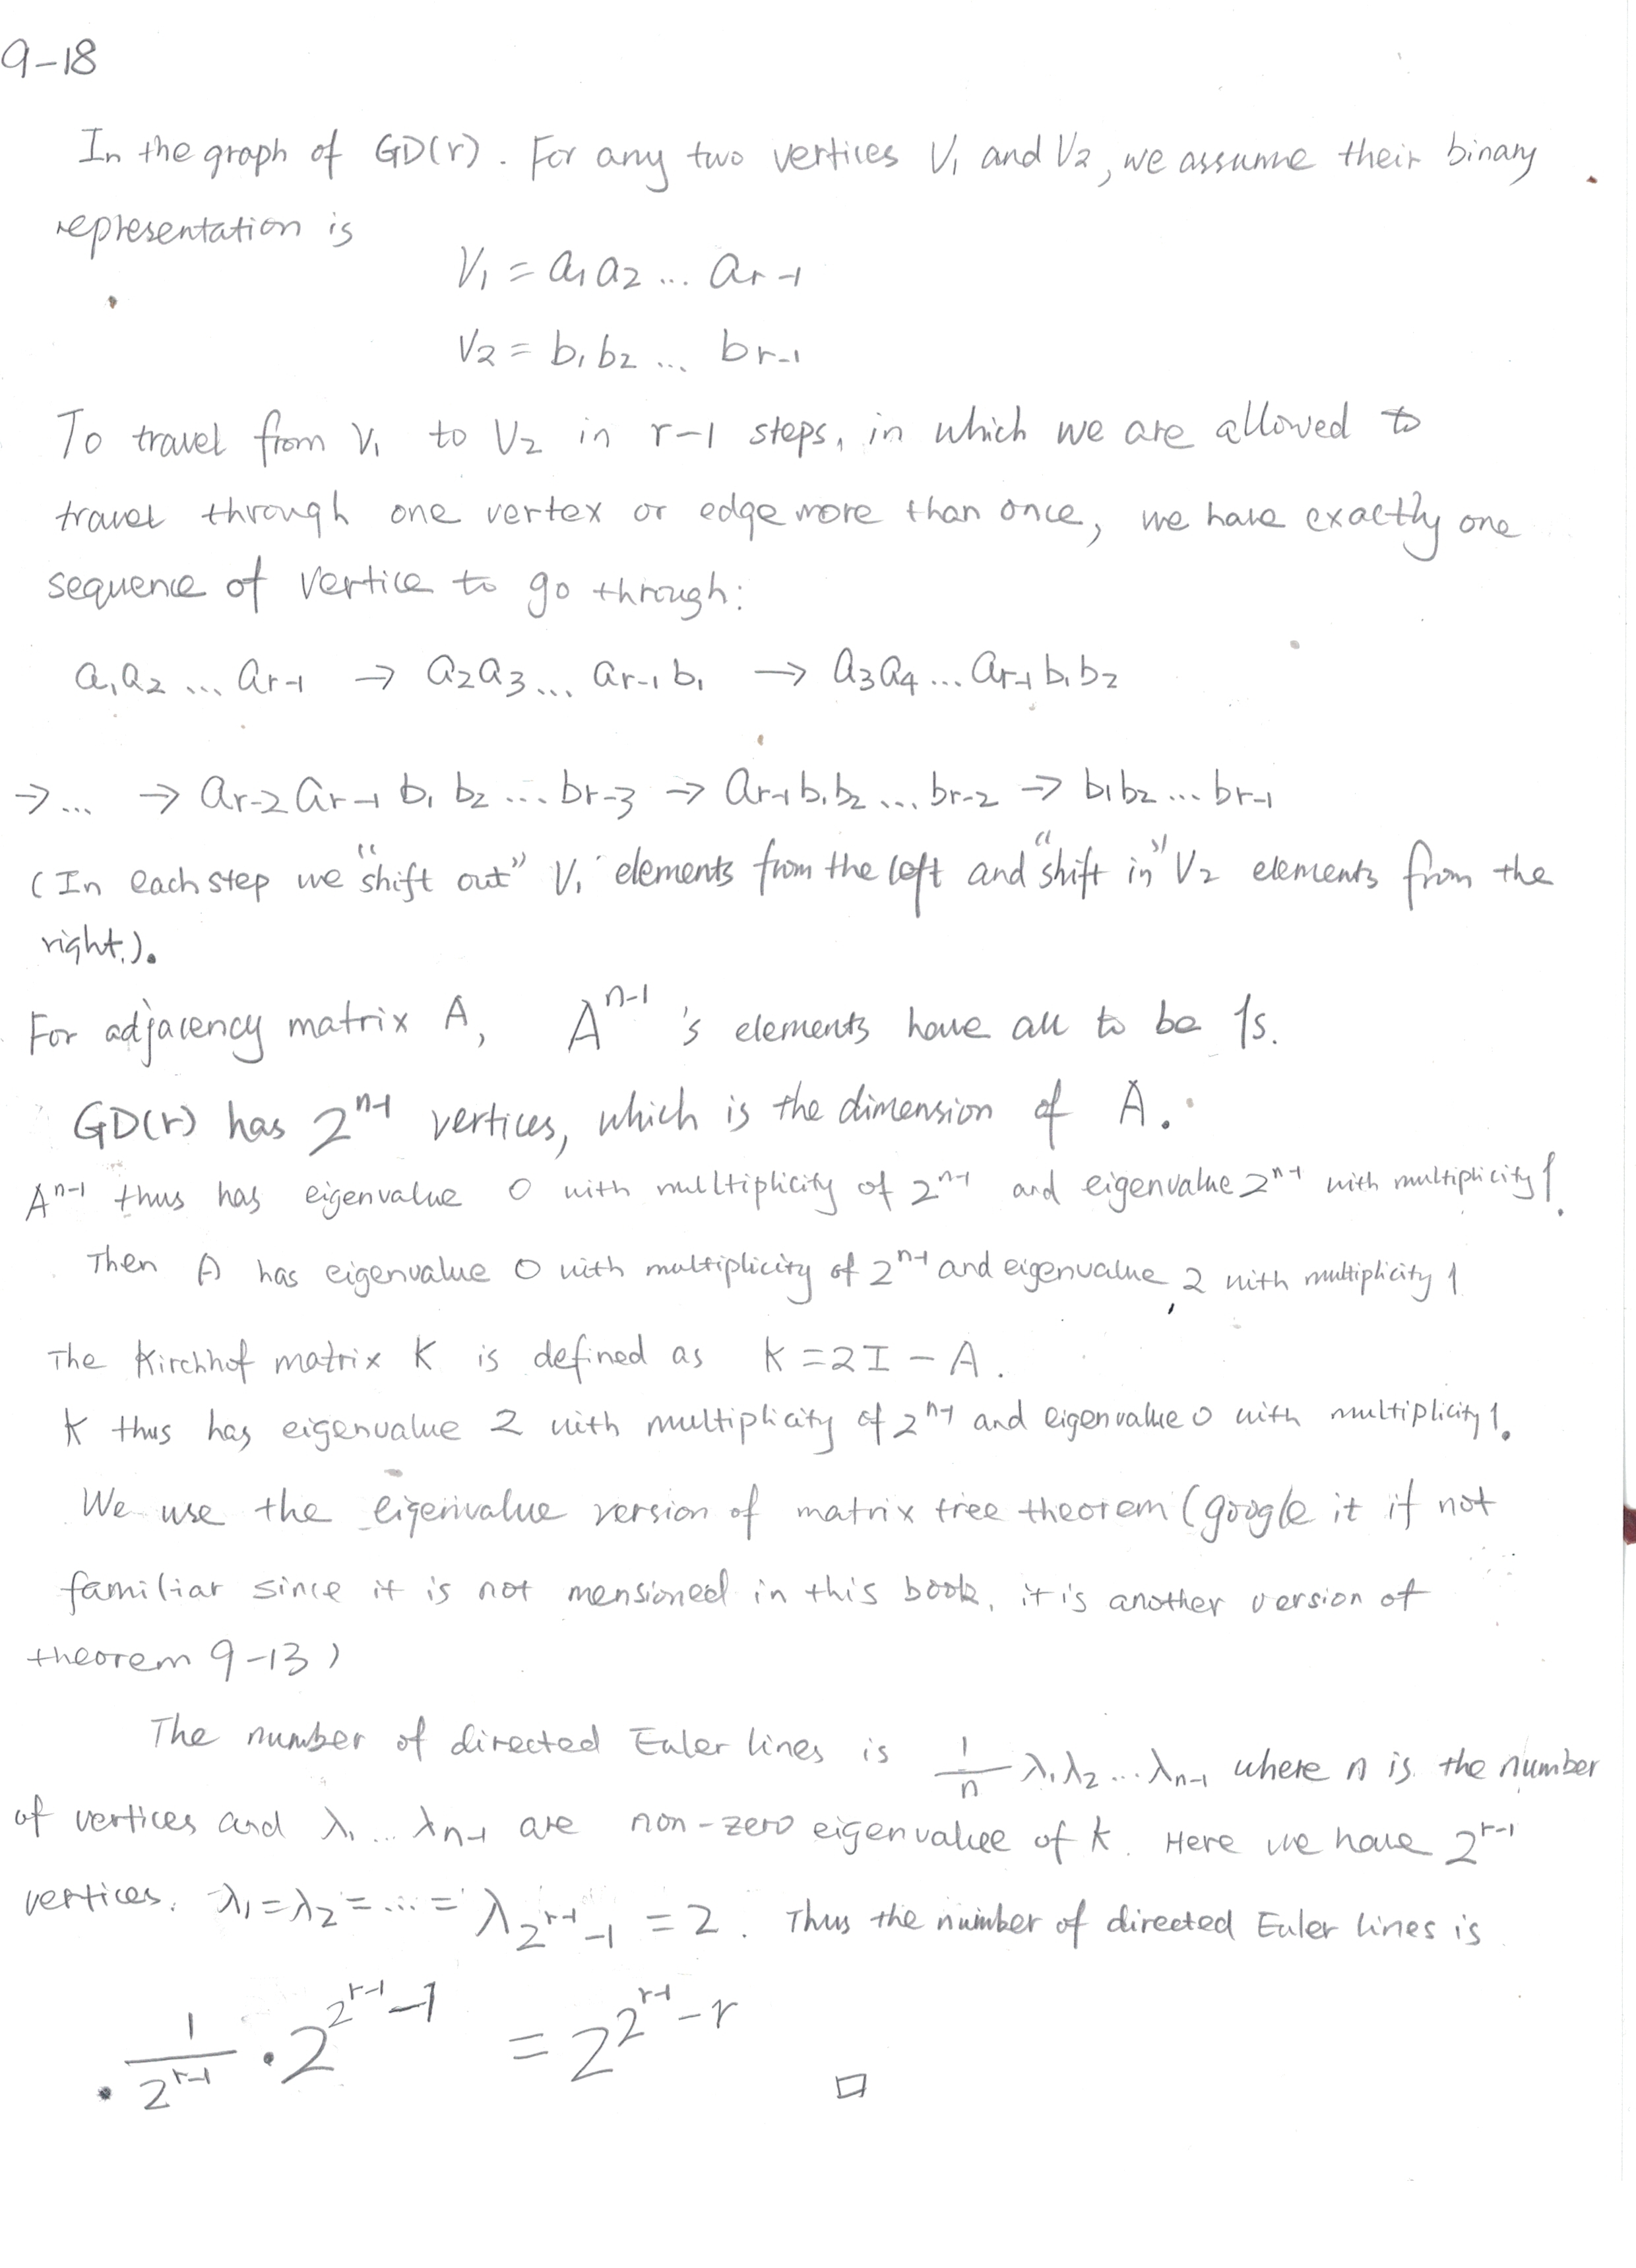 9-18
In the graph of GD(r). For any two vertices V₁ and V₂, we assume their binary
representation is
V₁ = a₁a₂ ... aᵣ₋₁
V₂ = b₁b₂ ... bᵣ₋₁
To travel from V₁ to V₂ in r-1 steps, in which we are allowed to
travel through one vertex or edge more than once, we have exactly one
sequence of vertice to go through:
a₁a₂ ... aᵣ₋₁ → a₂a₃ ... aᵣ₋₁b₁ → a₃a₄ ... aᵣ₋₁b₁b₂
→ ... → aᵣ₋₂aᵣ₋₁b₁b₂ ... bᵣ₋₃ → aᵣ₋₁b₁b₂ ... bᵣ₋₂ → b₁b₂ ... bᵣ₋₁
(In each step we "shift out" V₁ elements from the left and "shift in" V₂ elements from the
right.).
For adjacency matrix A, Aⁿ⁻¹ 's elements have all to be 1s.
GD(r) has 2ⁿ⁻¹ vertices, which is the dimension of A.
Aⁿ⁻¹ thus has eigenvalue 0 with multiplicity of 2ⁿ⁻¹ and eigenvalue 2ⁿ⁻¹ with multiplicity 1.
Then A has eigenvalue 0 with multiplicity of 2ⁿ⁻¹ and eigenvalue 2 with multiplicity 1
The Kirchhof matrix K is defined as K = 2I - A.
K thus has eigenvalue 2 with multiplicity of 2ⁿ⁻¹ and eigenvalue 0 with multiplicity 1.
We use the eigenvalue version of matrix tree theorem (google it if not
familiar since it is not mensioned in this book, it is another version of
theorem 9-13)
The number of directed Euler lines is 1/n λ₁λ₂...λₙ₋₁ where n is the number
of vertices and λ₁...λₙ₋₁ are non-zero eigenvalue of K. Here we have 2ʳ⁻¹
vertices. λ₁=λ₂=...=λ_{2^{r-1}-1} = 2. Thus the number of directed Euler lines is
1/2^{r-1} · 2^{2^{r-1}-1} = 2^{2^{r-1}-r} □